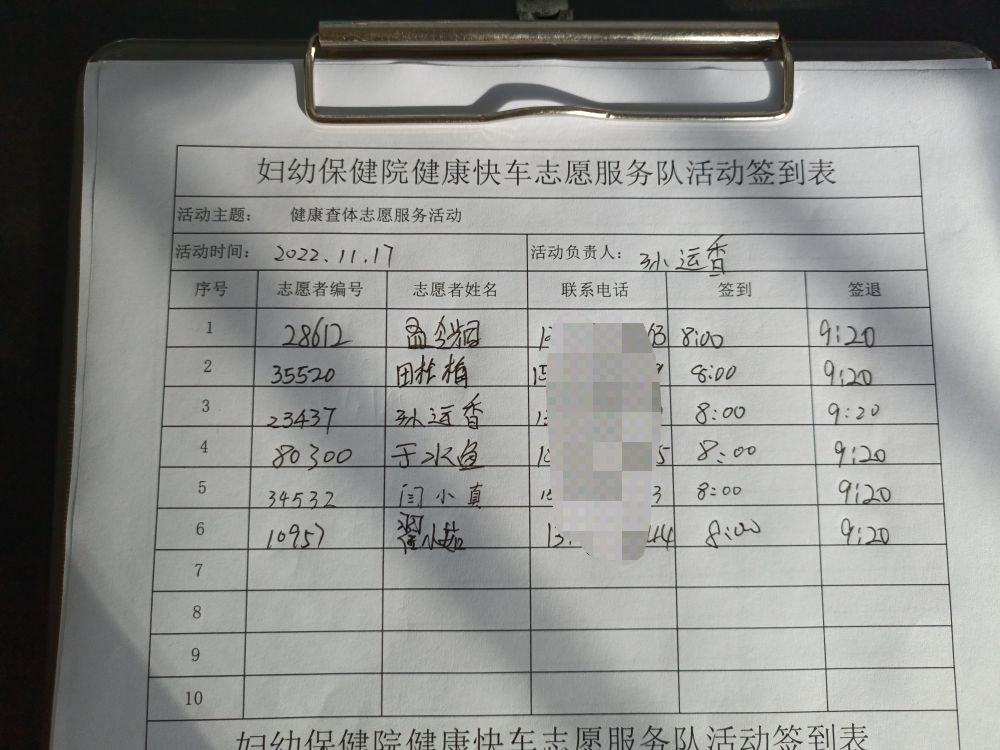 妇幼保健院健康快车志愿服务队活动签到表
活动主题： 健康查体志愿服务活动
活动时间： 2022.11.17 活动负责人： 孙运香
序号 志愿者编号 志愿者姓名 联系电话 签到 签退
1 28612 8:00 9:20
2 35520 田桂梅 8:00 9:20
3 23437 孙运香 8:00 9:20
4 80300 于水鱼 8:00 9:20
5 34532 闫小真 8:00 9:20
6 10957 8:00 9:20
7
8
9
10
妇幼保健院健康快车志愿服务队活动签到表